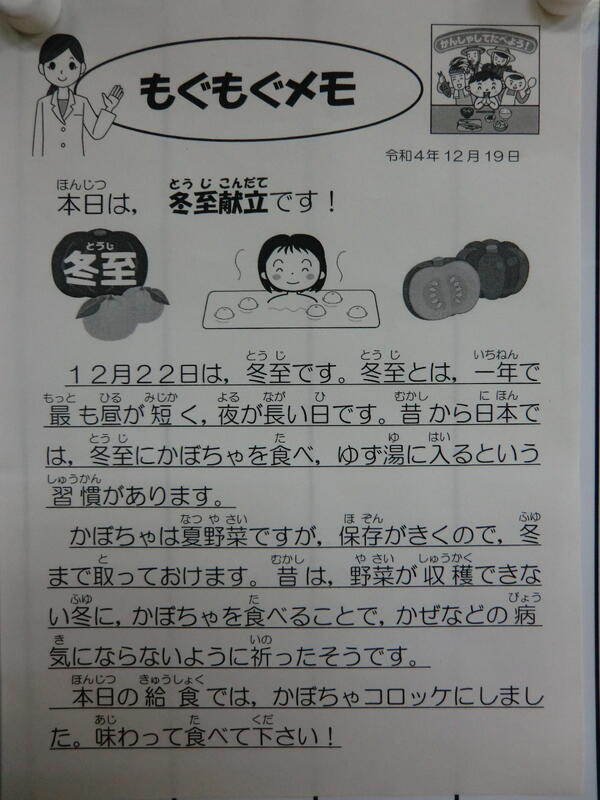 もぐもぐメモ
かんしゃしてたべよう！
令和４年１２月１９日
本日は，冬至献立です！
冬至
１２月２２日は，冬至です。冬至とは，一年で
最も昼が短く，夜が長い日です。昔から日本で
は，冬至にかぼちゃを食べ，ゆず湯に入るという
習慣があります。
かぼちゃは夏野菜ですが，保存がきくので，冬
まで取っておけます。昔は，野菜が収穫できな
い冬に，かぼちゃを食べることで，かぜなどの病
気にならないように祈ったそうです。
本日の給食では，かぼちゃコロッケにしまし
た。味わって食べて下さい！